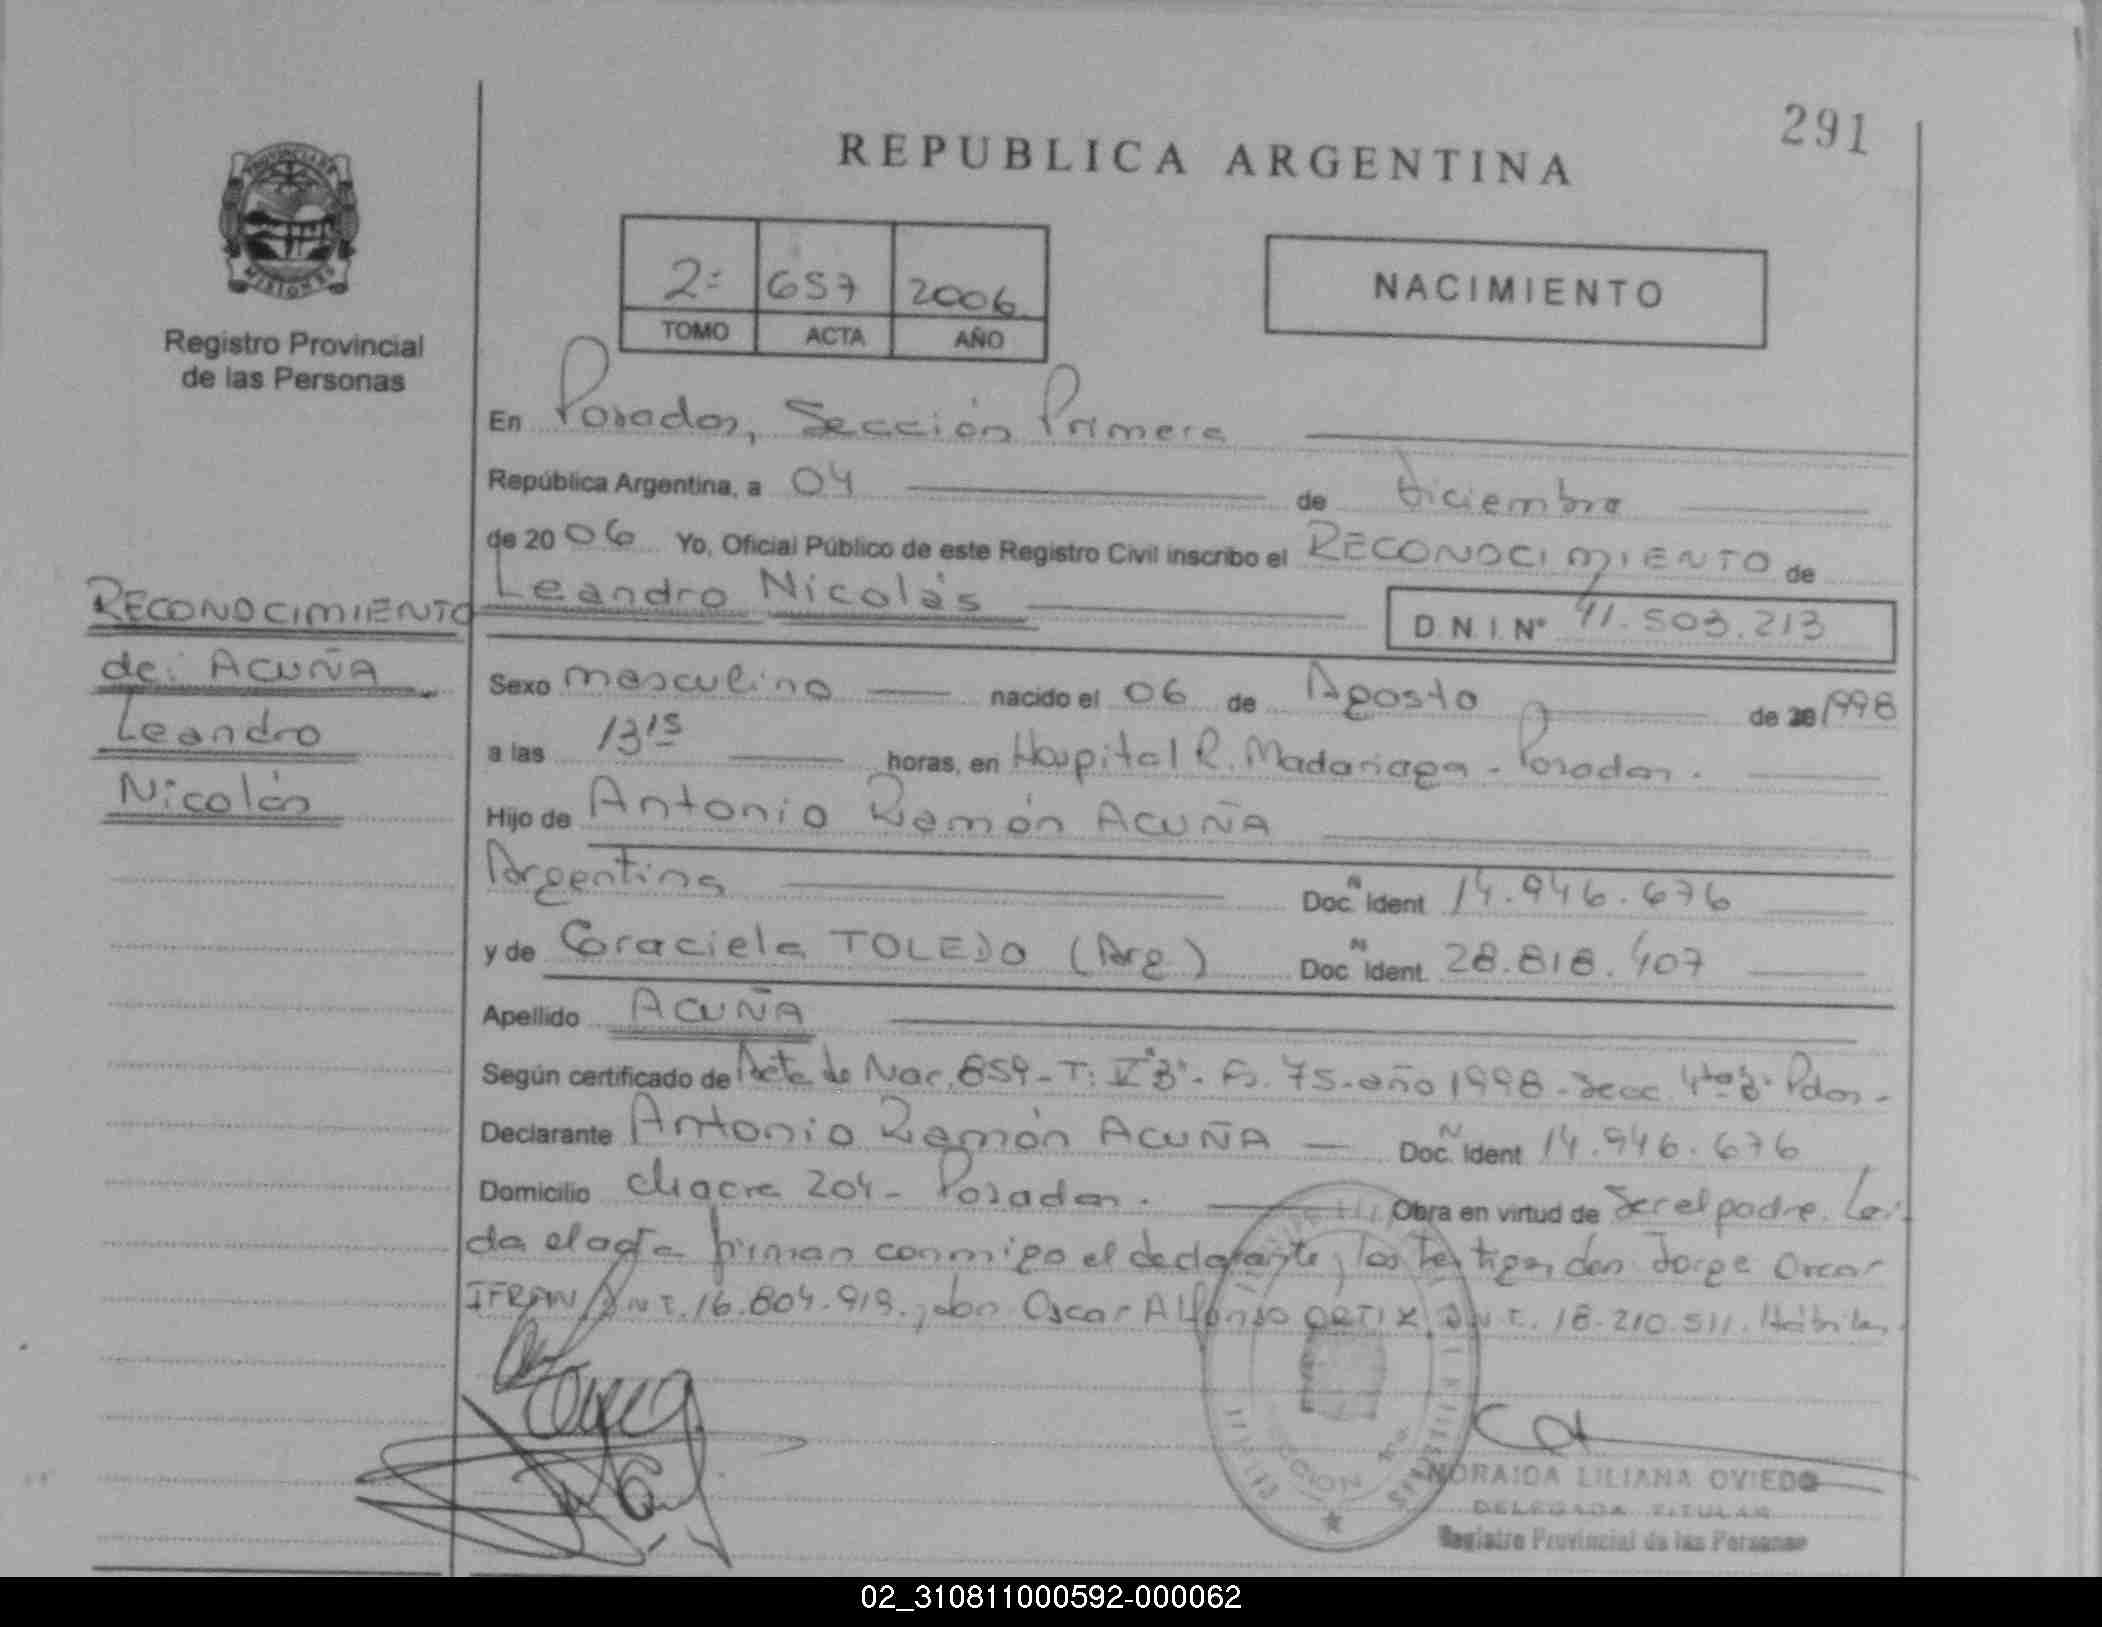 291
REPUBLICA ARGENTINA
PROVINCIA DE
MISIONES
Registro Provincial
de las Personas
2º 657 2006
TOMO ACTA AÑO
NACIMIENTO
En Posadas, Sección Primera
República Argentina, a 04 de diciembre
de 2006 Yo, Oficial Público de este Registro Civil inscribo el RECONOCIMIENTO de
Leandro Nicolás D.N.I. Nº 41.503.213
RECONOCIMIENTO
de: ACUÑA
Leandro
Nicolás
Sexo masculino nacido el 06 de Agosto de 1998
a las 13 15 horas, en Hospital R. Madariaga - Posadas.
Hijo de Antonio Ramón ACUÑA
Argentina Doc. Ident 14.946.676
y de Graciela TOLEDO (Arg) Doc. Ident. 28.818.407
Apellido ACUÑA
Según certificado de Acta de Nac. 859 - T: V"B" - Fº. 75 - año 1998 - Secc. 4ta Pdas -
Declarante Antonio Ramón ACUÑA - Doc. Ident 14.946.676
Domicilio chacra 204 - Posadas. Obra en virtud de Ser el padre. Leí-
da el acta firman conmigo el declarante, los testigos, don Jorge Oscar
IFRAN D.N.I. 16.804.919., don Oscar Alfonso ORTIZ D.N.I. 18.210.511. Hábiles
NORAIDA LILIANA OVIEDO
DELEGADA TITULAR
Registro Provincial de las Personas
02_310811000592-000062